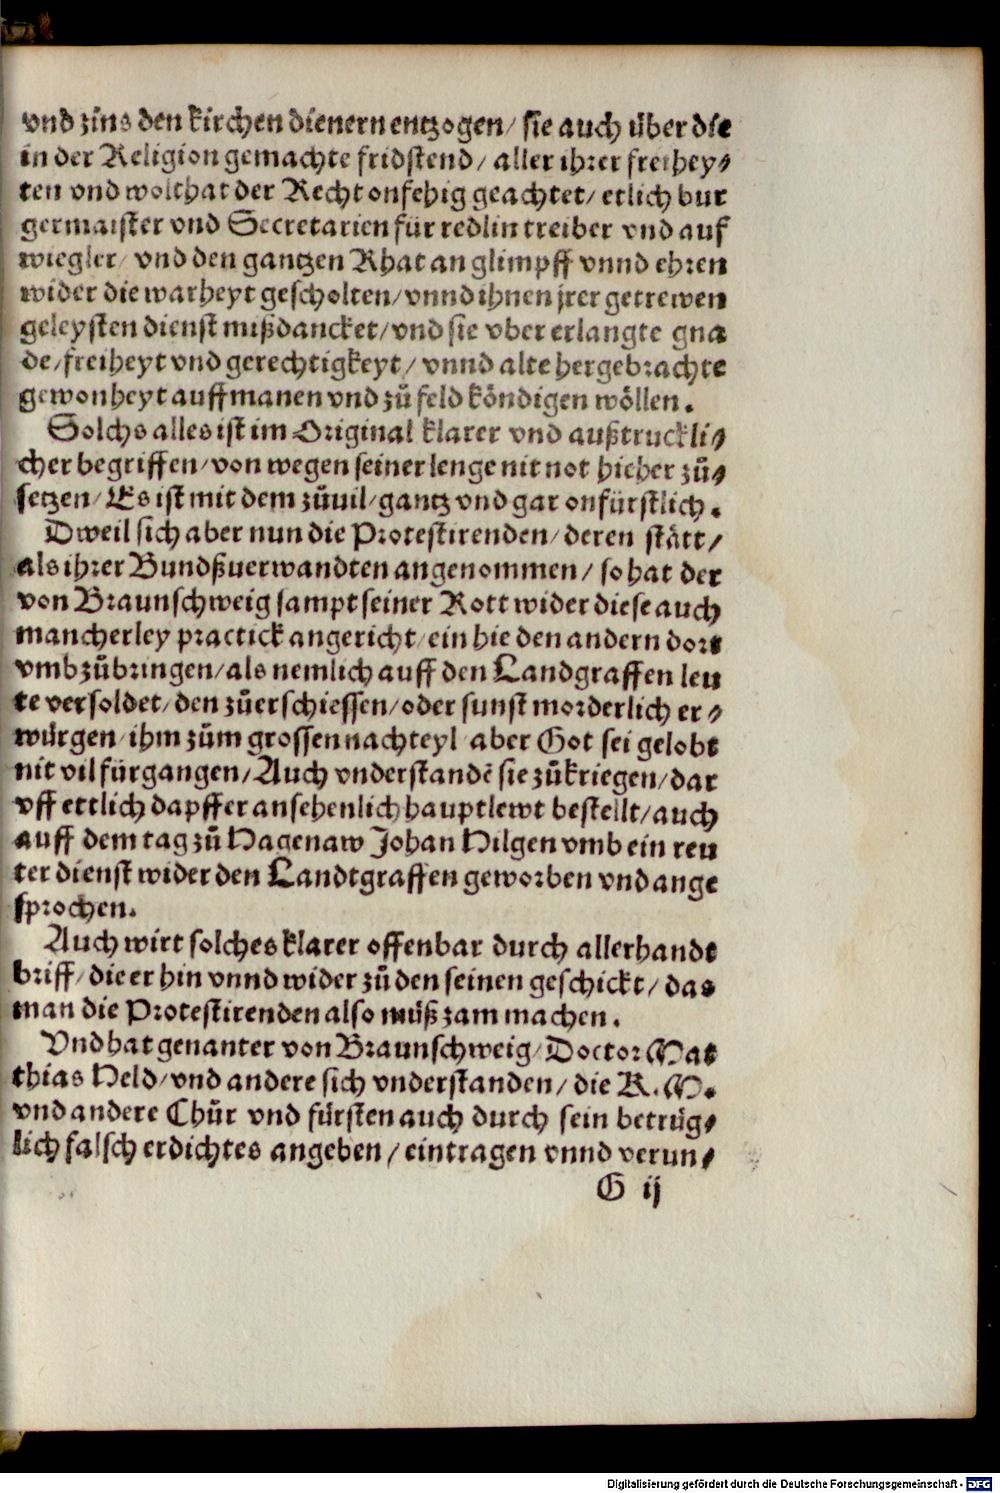 vnd zins den kirchen dienern entzogen/ sie auch über die
in der Religion gemachte fridstend/ aller ihrer freihey⸗
ten vnd wolthat der Recht onfehig geachtet/ etlich bur
germaister vnd Secretarien für redlin treiber vnd auf
wiegler/ vnd den gantzen Rhat an glimpff vnnd ehren
wider die warheyt gescholten/ vnnd ihnen jrer getrewen
geleysten dienst mißdancket/ vnd sie vber erlangte gna
de/ freiheyt vnd gerechtigkeyt/ vnnd alte hergebrachte
gewonheyt auffmanen vnd zů feld köndigen wöllen.
Solchs alles ist im Original klarer vnd außtruckli⸗
cher begriffen/ von wegen seiner lenge nit not hieher zů⸗
setzen/ Es ist mit dem zůuil/ gantz vnd gar onfürstlich.
Dweil sich aber nun die Protestirenden/ deren stätt/
als ihrer Bundßuerwandten angenommen/ so hat der
von Braunschweig sampt seiner Rott wider diese auch
mancherley practick angericht/ ein hie den andern dort
vmbzůbringen/ als nemlich auff den Landgraffen leu
te versoldet/ den zůerschiessen/ oder sunst morderlich er⸗
würgen/ ihm zům grossen nachteyl/ aber Got sei gelobt
nit vil fürgangen/ Auch vnderstandē sie zůkriegen/ dar
vff ettlich dapffer ansehenlich hauptlewt bestellt/ auch
auff dem tag zů Hagenaw Johan Hilgen vmb ein reu
ter dienst wider den Landtgraffen geworben vnd ange
sprochen.
Auch wirt solches klarer offenbar durch allerhande
briff/ die er hin vnnd wider zů den seinen geschickt/ das
man die Protestirenden also můß zam machen.
Vnd hat genanter von Braunschweig/ Doctor Mat
thias Held/ vnd andere sich vnderstanden/ die K. M.
vnd andere Chůr vnd fürsten auch durch sein betrüg⸗
lich falsch erdichtes angeben/ eintragen vnnd verun⸗
G ij
Digitalisierung gefördert durch die Deutsche Forschungsgemeinschaft - DFG